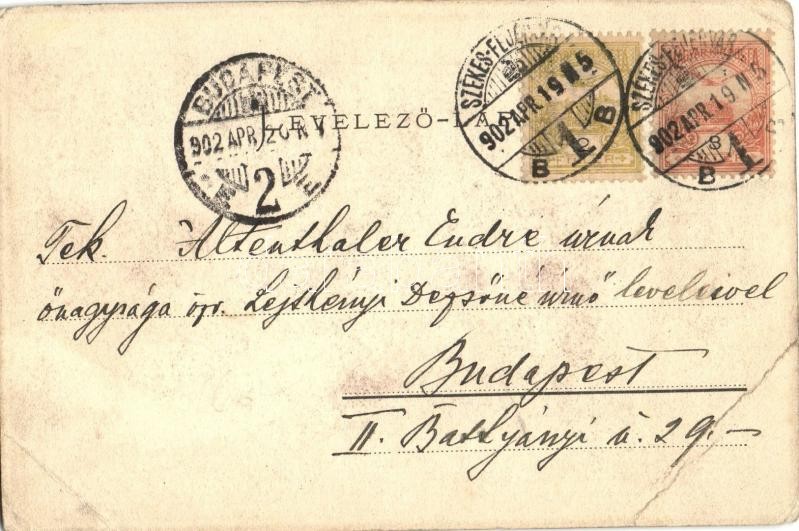 SZÉKES-FEJÉRVÁR
902 APR 19 N 5
B 1 B
SZÉKES-FEJÉRVÁR
902 APR 19 N 5
B 1
BUDAPEST
902 APR 20
2
LEVELEZŐ-LAP
Tek. Altenthaler Endre úrnak
őnagysága özv. Lejthényi Dezsőné úrnő leveleivel
Budapest
II. Batthyányi ú. 29.–